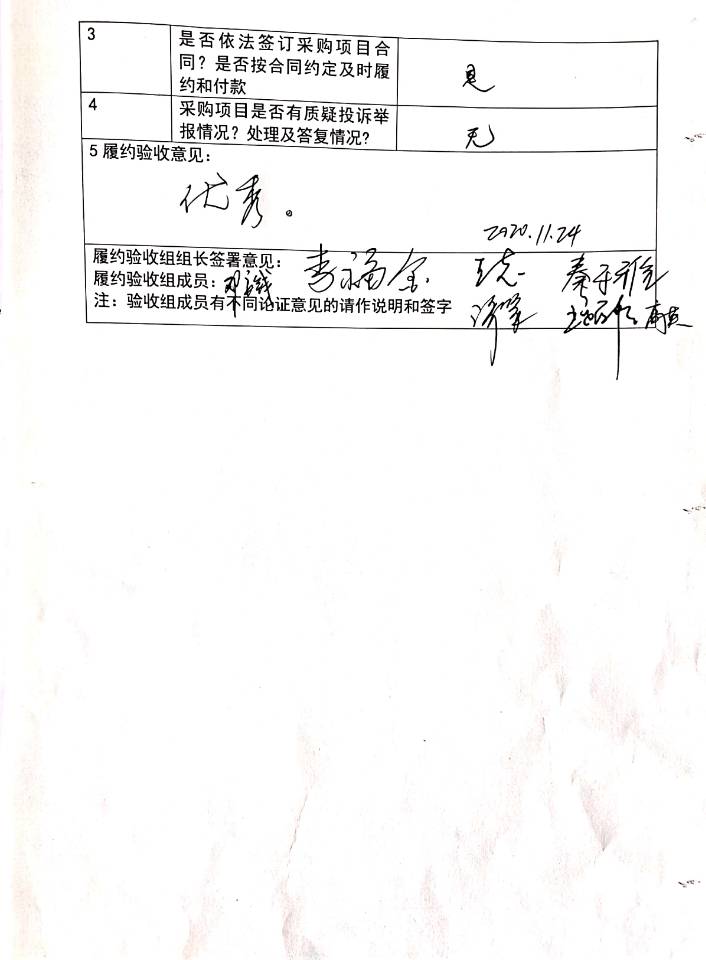 3
是否依法签订采购项目合
同？是否按合同约定及时履
约和付款
是
4
采购项目是否有质疑投诉举
报情况？处理及答复情况？
无
5 履约验收意见：
优秀。
2020.11.24
履约验收组组长签署意见：
履约验收组成员：
注：验收组成员有不同论证意见的请作说明和签字